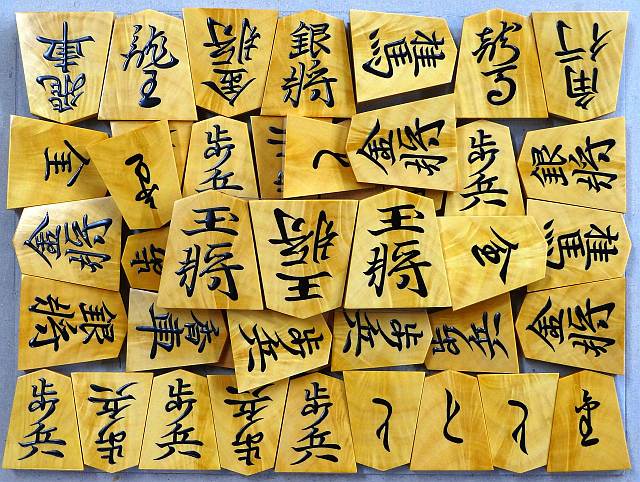 飛車 龍王 金将 銀将 桂馬 龍馬 角行
金 歩兵 と 金将 歩兵 銀将
金将 歩 玉将 王将 玉将 金 桂馬
銀将 香車 歩兵 歩兵 歩兵 金将
歩兵 歩兵 歩兵 歩兵 歩兵 と と と